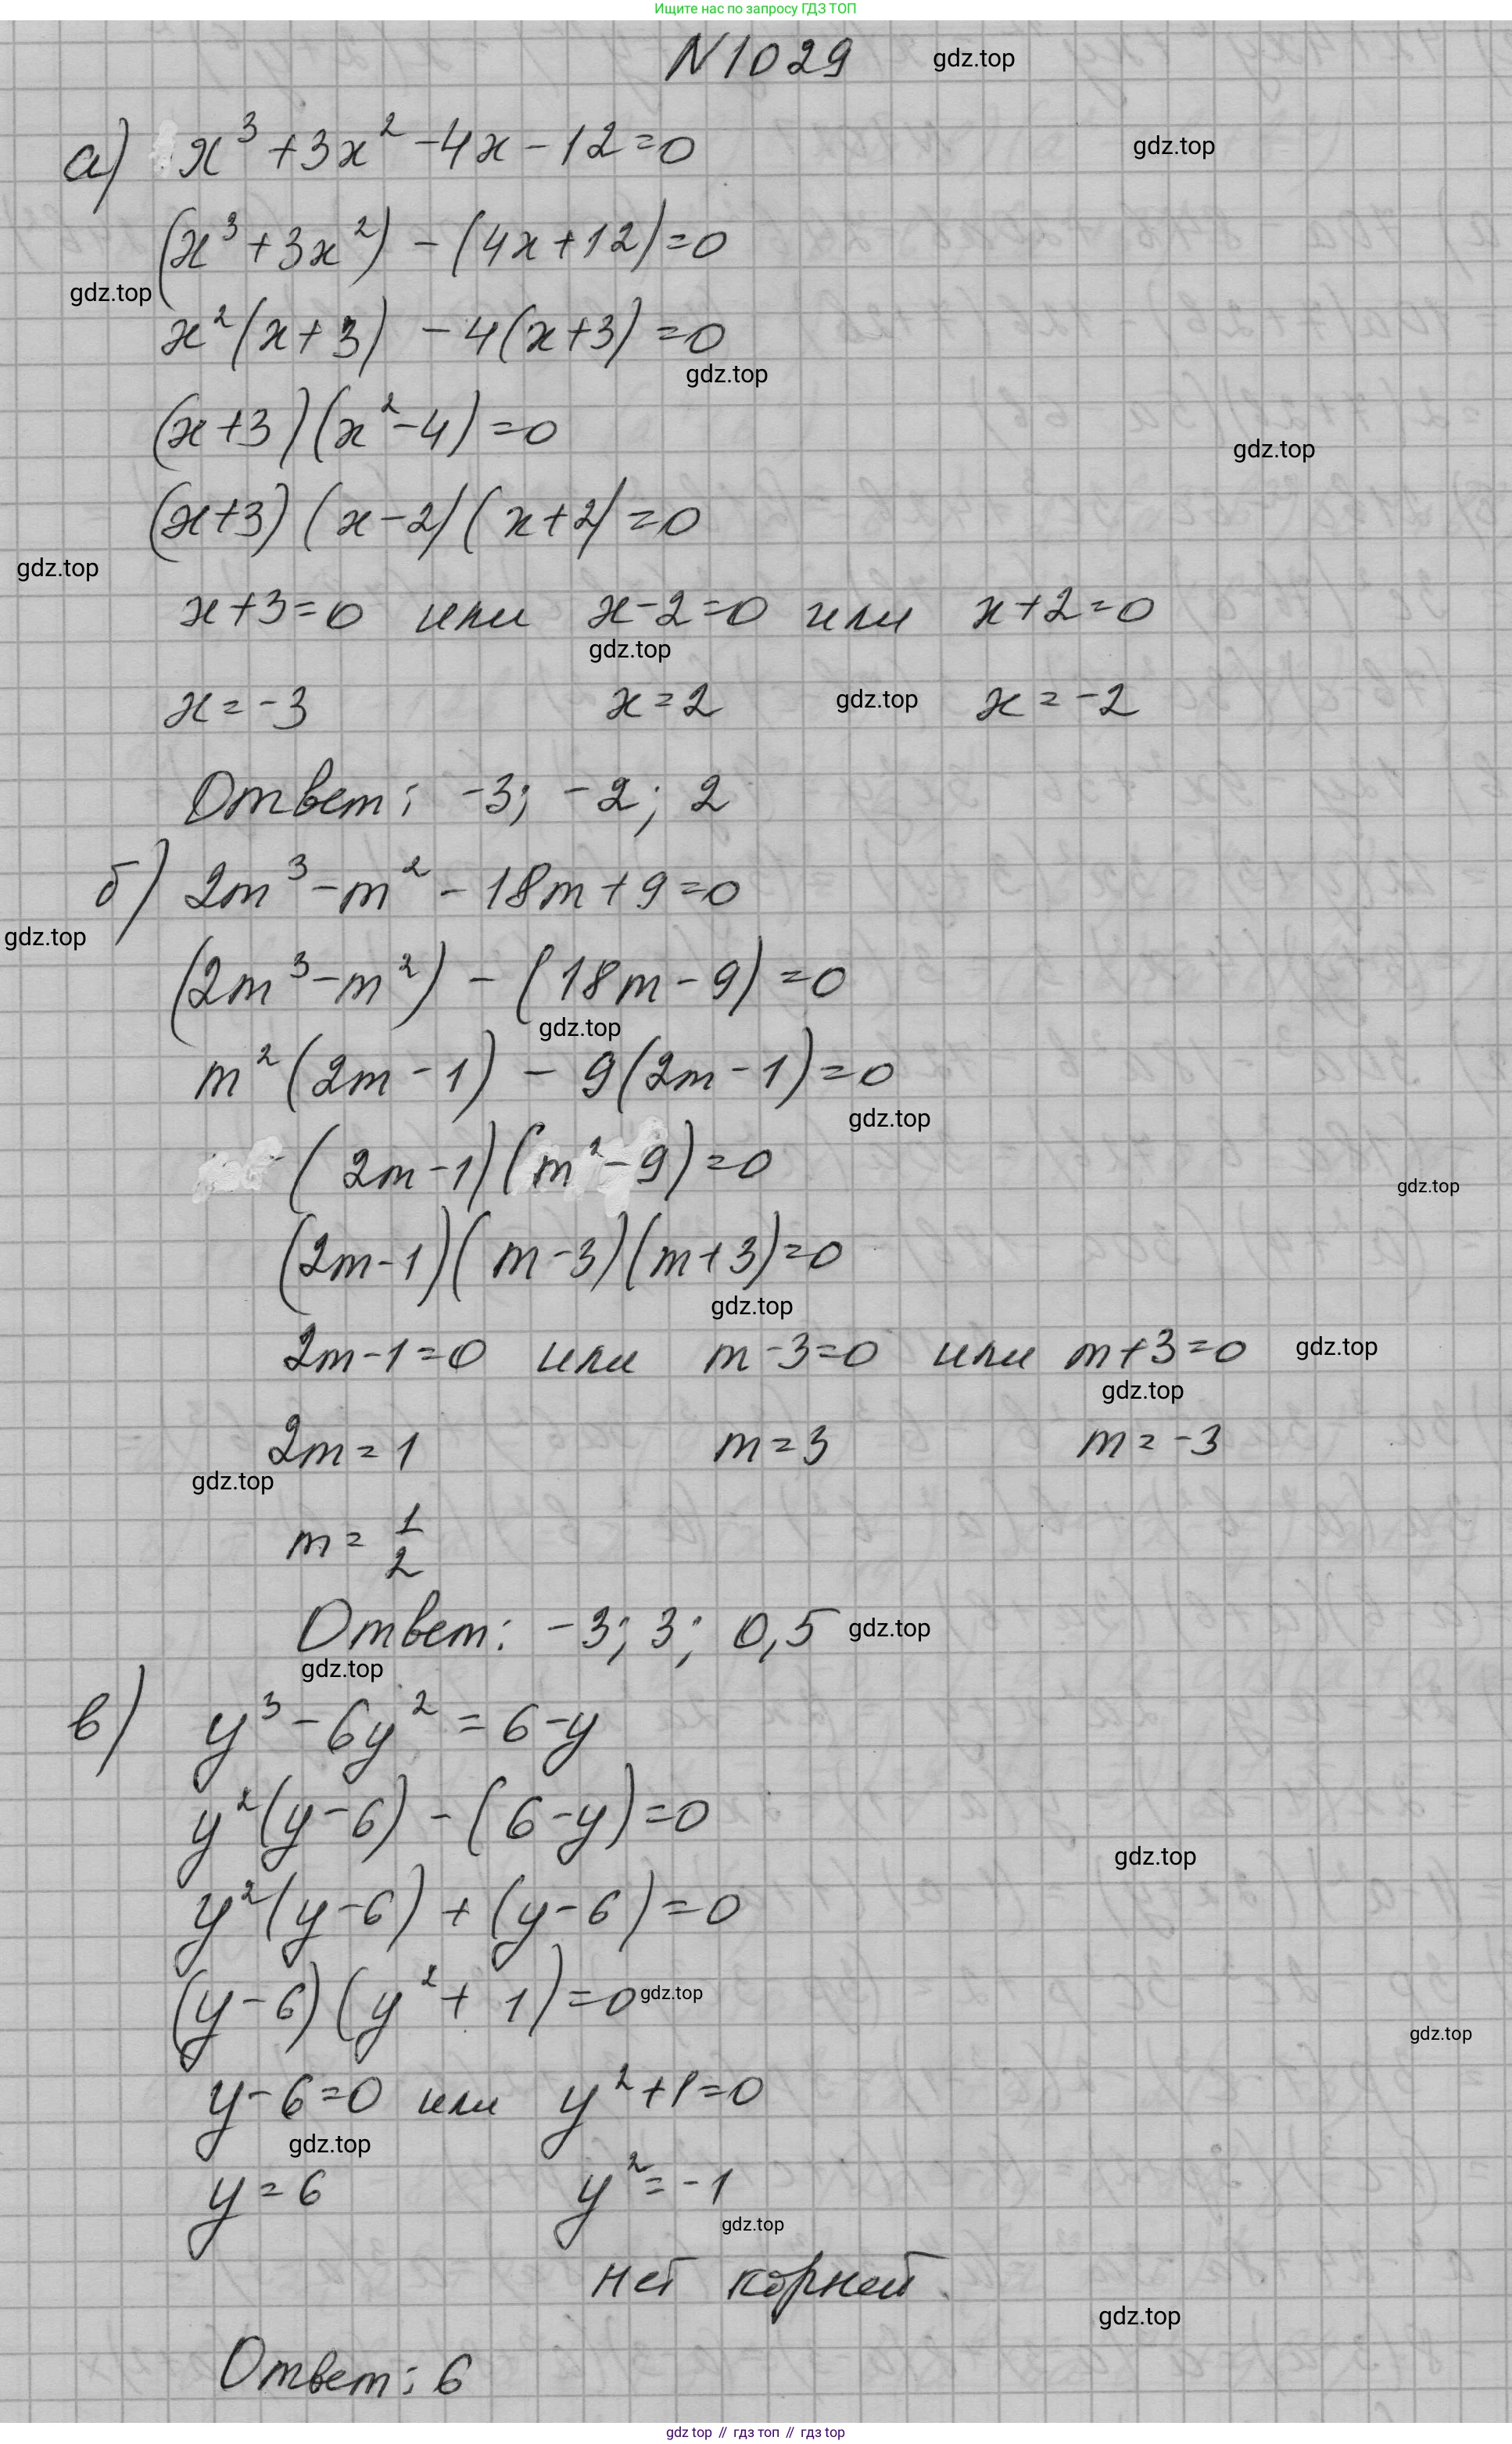 Ищите нас по запросу ГДЗ ТОП
N1029 gdz.top
а) x³+3x²-4x-12=0 gdz.top
(x³+3x²) - (4x+12)=0
gdz.top
x²(x+3) - 4(x+3)=0
gdz.top
(x+3)(x²-4)=0
gdz.top
(x+3)(x-2)(x+2)=0
gdz.top
x+3=0 или x-2=0 или x+2=0
gdz.top
x=-3 x=2 gdz.top x=-2
Ответ: -3; -2; 2
б) 2m³-m²-18m+9=0
gdz.top
(2m³-m²) - (18m-9)=0
gdz.top
m²(2m-1) - 9(2m-1)=0
gdz.top
(2m-1)(m²-9)=0
gdz.top
(2m-1)(m-3)(m+3)=0
gdz.top
2m-1=0 или m-3=0 или m+3=0 gdz.top
gdz.top
2m=1 m=3 m=-3
gdz.top
m=1/2
Ответ: -3; 3; 0,5 gdz.top
gdz.top
в) y³-6y²=6-y
y²(y-6)-(6-y)=0
gdz.top
y²(y-6)+(y-6)=0
(y-6)(y²+1)=0 gdz.top
gdz.top
y-6=0 или y²+1=0
gdz.top
y=6 y²=-1
gdz.top
нет корней.
gdz.top
Ответ: 6
gdz top // гдз топ // гдз top